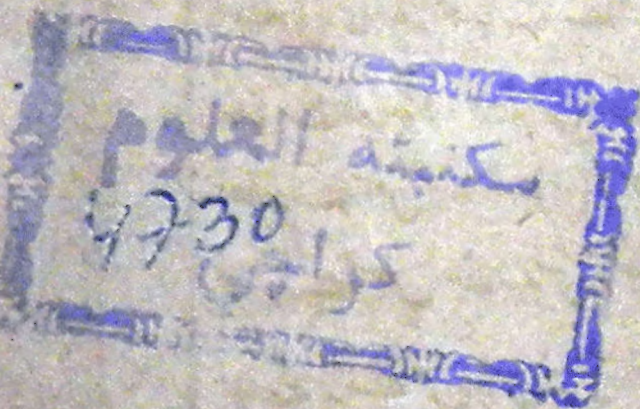 مكتبة العلوم
4730
كراچی